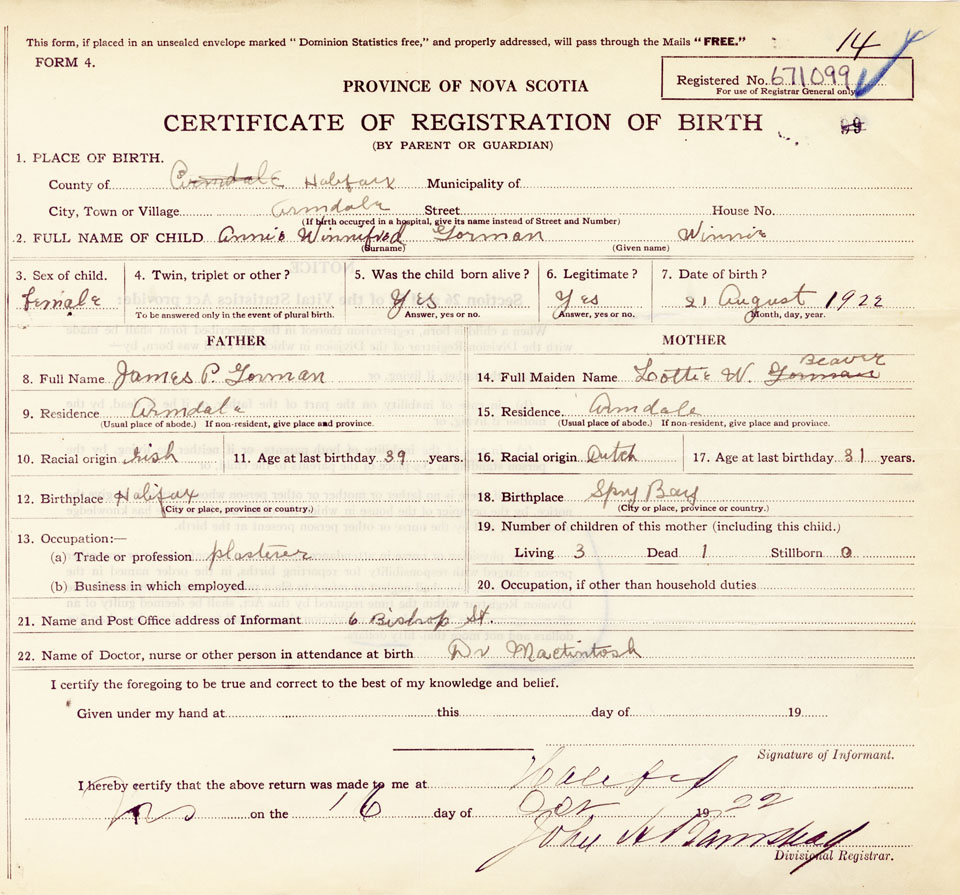 This form, if placed in an unsealed envelope marked "Dominion Statistics free," and properly addressed, will pass through the Mails "FREE."
14
FORM 4.
Registered No. 671099
For use of Registrar General only
PROVINCE OF NOVA SCOTIA
CERTIFICATE OF REGISTRATION OF BIRTH
(BY PARENT OR GUARDIAN)
1. PLACE OF BIRTH.
County of Armdale Halifax Municipality of
City, Town or Village Armdale Street House No.
(If birth occurred in a hospital, give its name instead of Street and Number)
2. FULL NAME OF CHILD Annie Winnifred Gorman Winnie
(Surname) (Given name)
3. Sex of child. 4. Twin, triplet or other? 5. Was the child born alive? 6. Legitimate? 7. Date of birth?
female Yes Yes 21 August 1922
To be answered only in the event of plural birth. Answer, yes or no. Answer, yes or no. Month, day, year.
FATHER MOTHER
8. Full Name James P. Gorman
14. Full Maiden Name Lottie W. Gorman Beaver
9. Residence Armdale
(Usual place of abode.) If non-resident, give place and province.
15. Residence. Armdale
(Usual place of abode.) If non-resident, give place and province.
10. Racial origin Irish 11. Age at last birthday 39 years.
16. Racial origin Dutch 17. Age at last birthday 31 years.
12. Birthplace Halifax
(City or place, province or country.)
18. Birthplace Spry Bay
(City or place, province or country.)
13. Occupation:—
(a) Trade or profession plasterer
(b) Business in which employed
19. Number of children of this mother (including this child.)
Living 3 Dead 1 Stillborn 0
20. Occupation, if other than household duties
21. Name and Post Office address of Informant 6 Bishop St.
22. Name of Doctor, nurse or other person in attendance at birth Dr Mactintosh
I certify the foregoing to be true and correct to the best of my knowledge and belief.
Given under my hand at this day of 19
Signature of Informant.
I hereby certify that the above return was made to me at Halifax
on the 16 day of Oct 1922
John A Barnstead
Divisional Registrar.